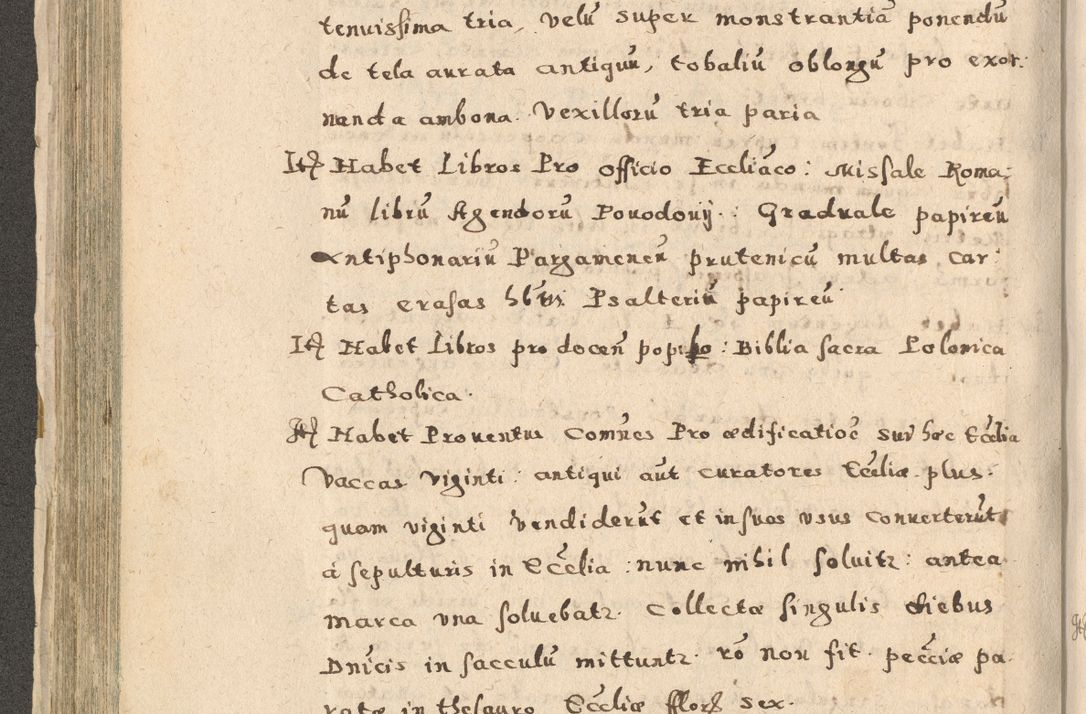 tenuissima tria, velū super monstrantiā ponendū
de tela aurata antiquū, tobaliū oblongū pro exor:
nanda ambona. Vexillorū tria paria
Itē Habet Libros Pro officio Eccliāco: Missale Roma:
nū librū Agendorū Pouodouij: Graduale papireū
Antiphonariū Pargameneū prutenicū multas car:
tas erasas hñs: Psalteriū papireū
Itē Habet Libros pro docen̄ : Biblia sacra Polonica
Catholica.
Itē Habet Prouentus Comūes Pro ædificatiōe sup̄ hæc Eccĺia
Vaccas viginti: antiqui aūt curatores Eccĺiæ plus:
quam viginti Vendiderūt et in suos vsus Conuerterūt
à sepulturis in Eccĺia: nunc nihil soluitr: antea
marca vna soluebatr. Collectæ singulis diebus
Dnīcis in sacculū mittuntr. rō non fit. pecc̄iæ pa
ratæ in thesauro Eccĺiæ florē sex.